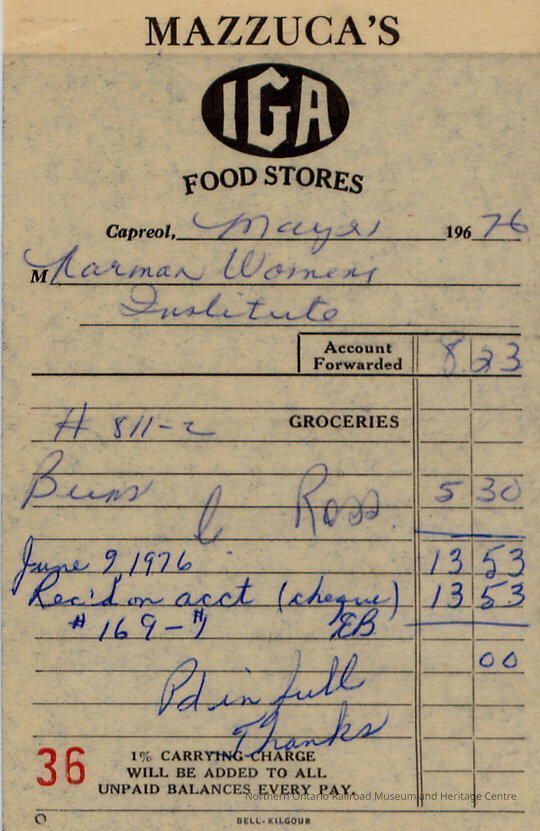 MAZZUCA'S
IGA
FOOD STORES
Capreol, May 21 1967 76
M Norman Womens
Institute
Account Forwarded 8.23
# 811-2 GROCERIES
Buns Ross. 5 30
June 9 1976 13 53
Rec'd on acct (cheque) 13 53
# 169-9 EB
00
Pd in full
Thanks
36
1% CARRYING CHARGE
WILL BE ADDED TO ALL
UNPAID BALANCES EVERY PAY.
Northern Ontario Railroad Museum and Heritage Centre
BELL-KILGOUR